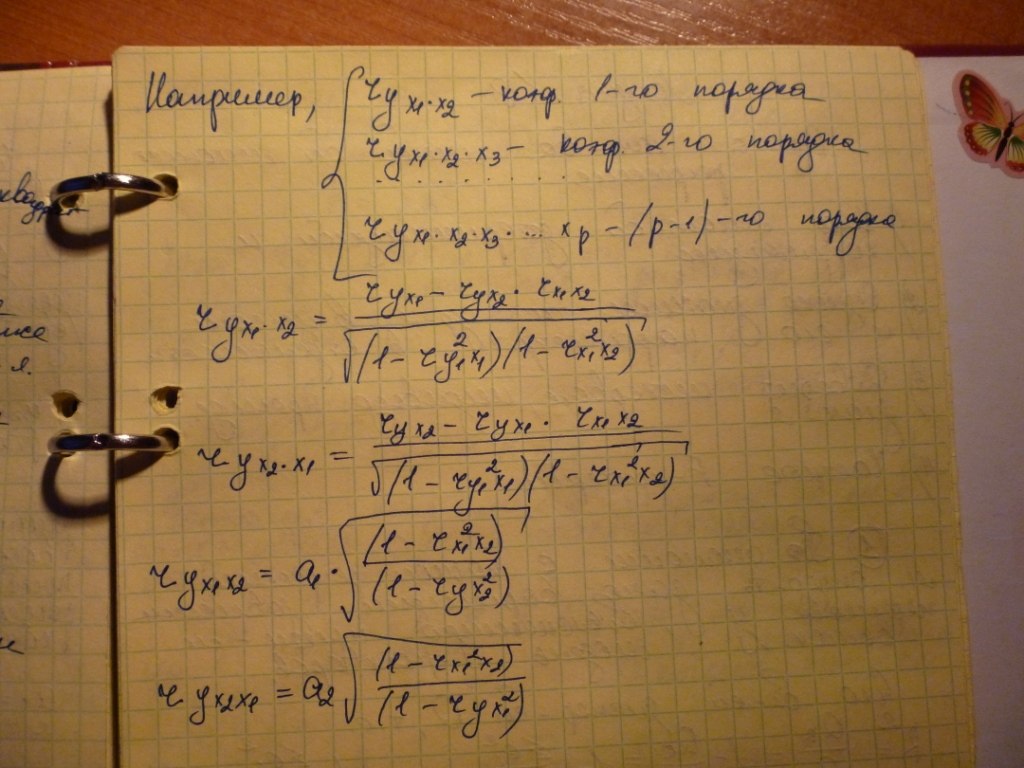 квадрат
Например, { r yx₁·x₂ – коэф. 1-го порядка
r yx₁·x₂·x₃ – коэф. 2-го порядка
. . . . . . . . . .
r yx₁·x₂·x₃· ... xp – (p-1)-го порядка
r yx₁·x₂ = (r yx₁ – r yx₂ · r x₁x₂) / √((1 – r y₁²x₁)(1 – r x₁²x₂))
r yx₂·x₁ = (r yx₂ – r yx₁ · r x₁x₂) / √((1 – r y₁²x₁)(1 – r x₁²x₂))
r yx₁x₂ = a₁ · √((1 – r x₁²x₂) / (1 – r yx₂²))
r yx₂x₁ = a₂ √((1 – r x₁²x₂) / (1 – r yx₁²))